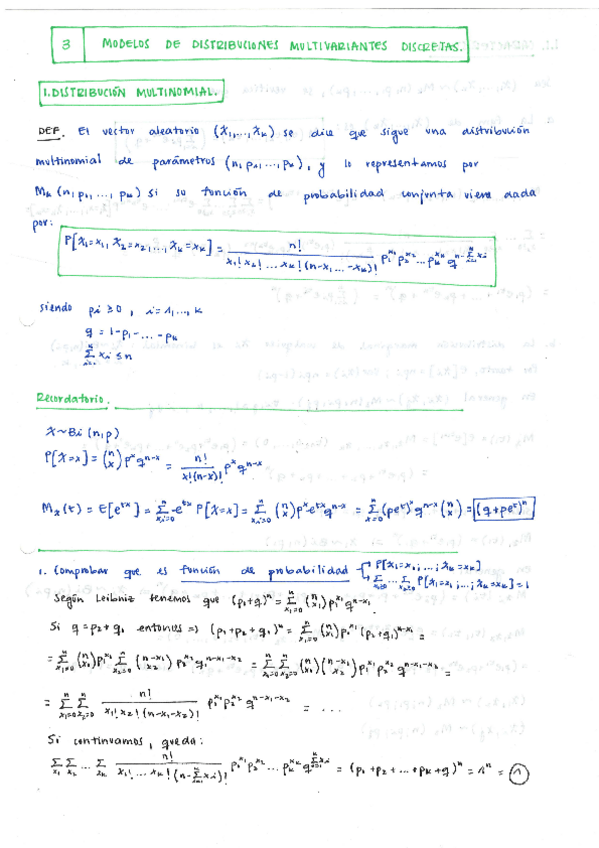 3 MODELOS DE DISTRIBUCIONES MULTIVARIANTES DISCRETAS.
1. DISTRIBUCIÓN MULTINOMIAL.
DEF. El vector aleatorio (X₁,...,Xₖ) se dice que sigue una distribución
multinomial de parámetros (n, p₁,..., pₖ), y lo representamos por
Mₖ (n, p₁,..., pₖ) si su función de probabilidad conjunta viene dada
por:
P[X₁=x₁, X₂=x₂,..., Xₖ=xₖ] = n! / (x₁! x₂! ... xₖ! (n-x₁...-xₖ)!) p₁^x₁ p₂^x₂ ... pₖ^xₖ q^(n-Σxᵢ)
siendo pᵢ ≥ 0, i=1,..., k
q = 1-p₁-...-pₖ
Σ xᵢ ≤ n
Recordatorio.
X~Bi (n,p)
P[X=x] = (n x) p^x q^(n-x) = n! / (x!(n-x)!) p^x q^(n-x)
Mₓ(t) = E[e^tx] = Σ e^tx P[X=x] = Σ (n x) p^x e^tx q^(n-x) = Σ (pe^t)^x q^(n-x) (n x) = (q+pe^t)^n
1. Comprobar que es función de probabilidad → P[X₁=x₁,...; Xₖ=xₖ]
→ Σ ... Σ P[X₁=x₁;...; Xₖ=xₖ] = 1
Según Leibniz tenemos que (p₁+q)^n = Σ (n x₁) p₁^x₁ q^(n-x₁).
Si q=p₂+q, entonces => (p₁+p₂+q)^n = Σ (n x₁) p₁^x₁ (p₂+q)^(n-x₁) =
= Σ (n x₁) p₁^x₁ Σ (n-x₁ x₂) p₂^x₂ q^(n-x₁-x₂) = Σ Σ (n x₁) (n-x₁ x₂) p₁^x₁ p₂^x₂ q^(n-x₁-x₂) =
= Σ Σ n! / (x₁! x₂! (n-x₁-x₂)!) p₁^x₁ p₂^x₂ q^(n-x₁-x₂) = ...
Si continuamos, queda:
Σ Σ ... Σ n! / (x₁! ... xₖ! (n-Σxᵢ)!) p₁^x₁ p₂^x₂ ... pₖ^xₖ q^(n-Σxᵢ) = (p₁+p₂+...+pₖ+q)^n = 1^n = 1